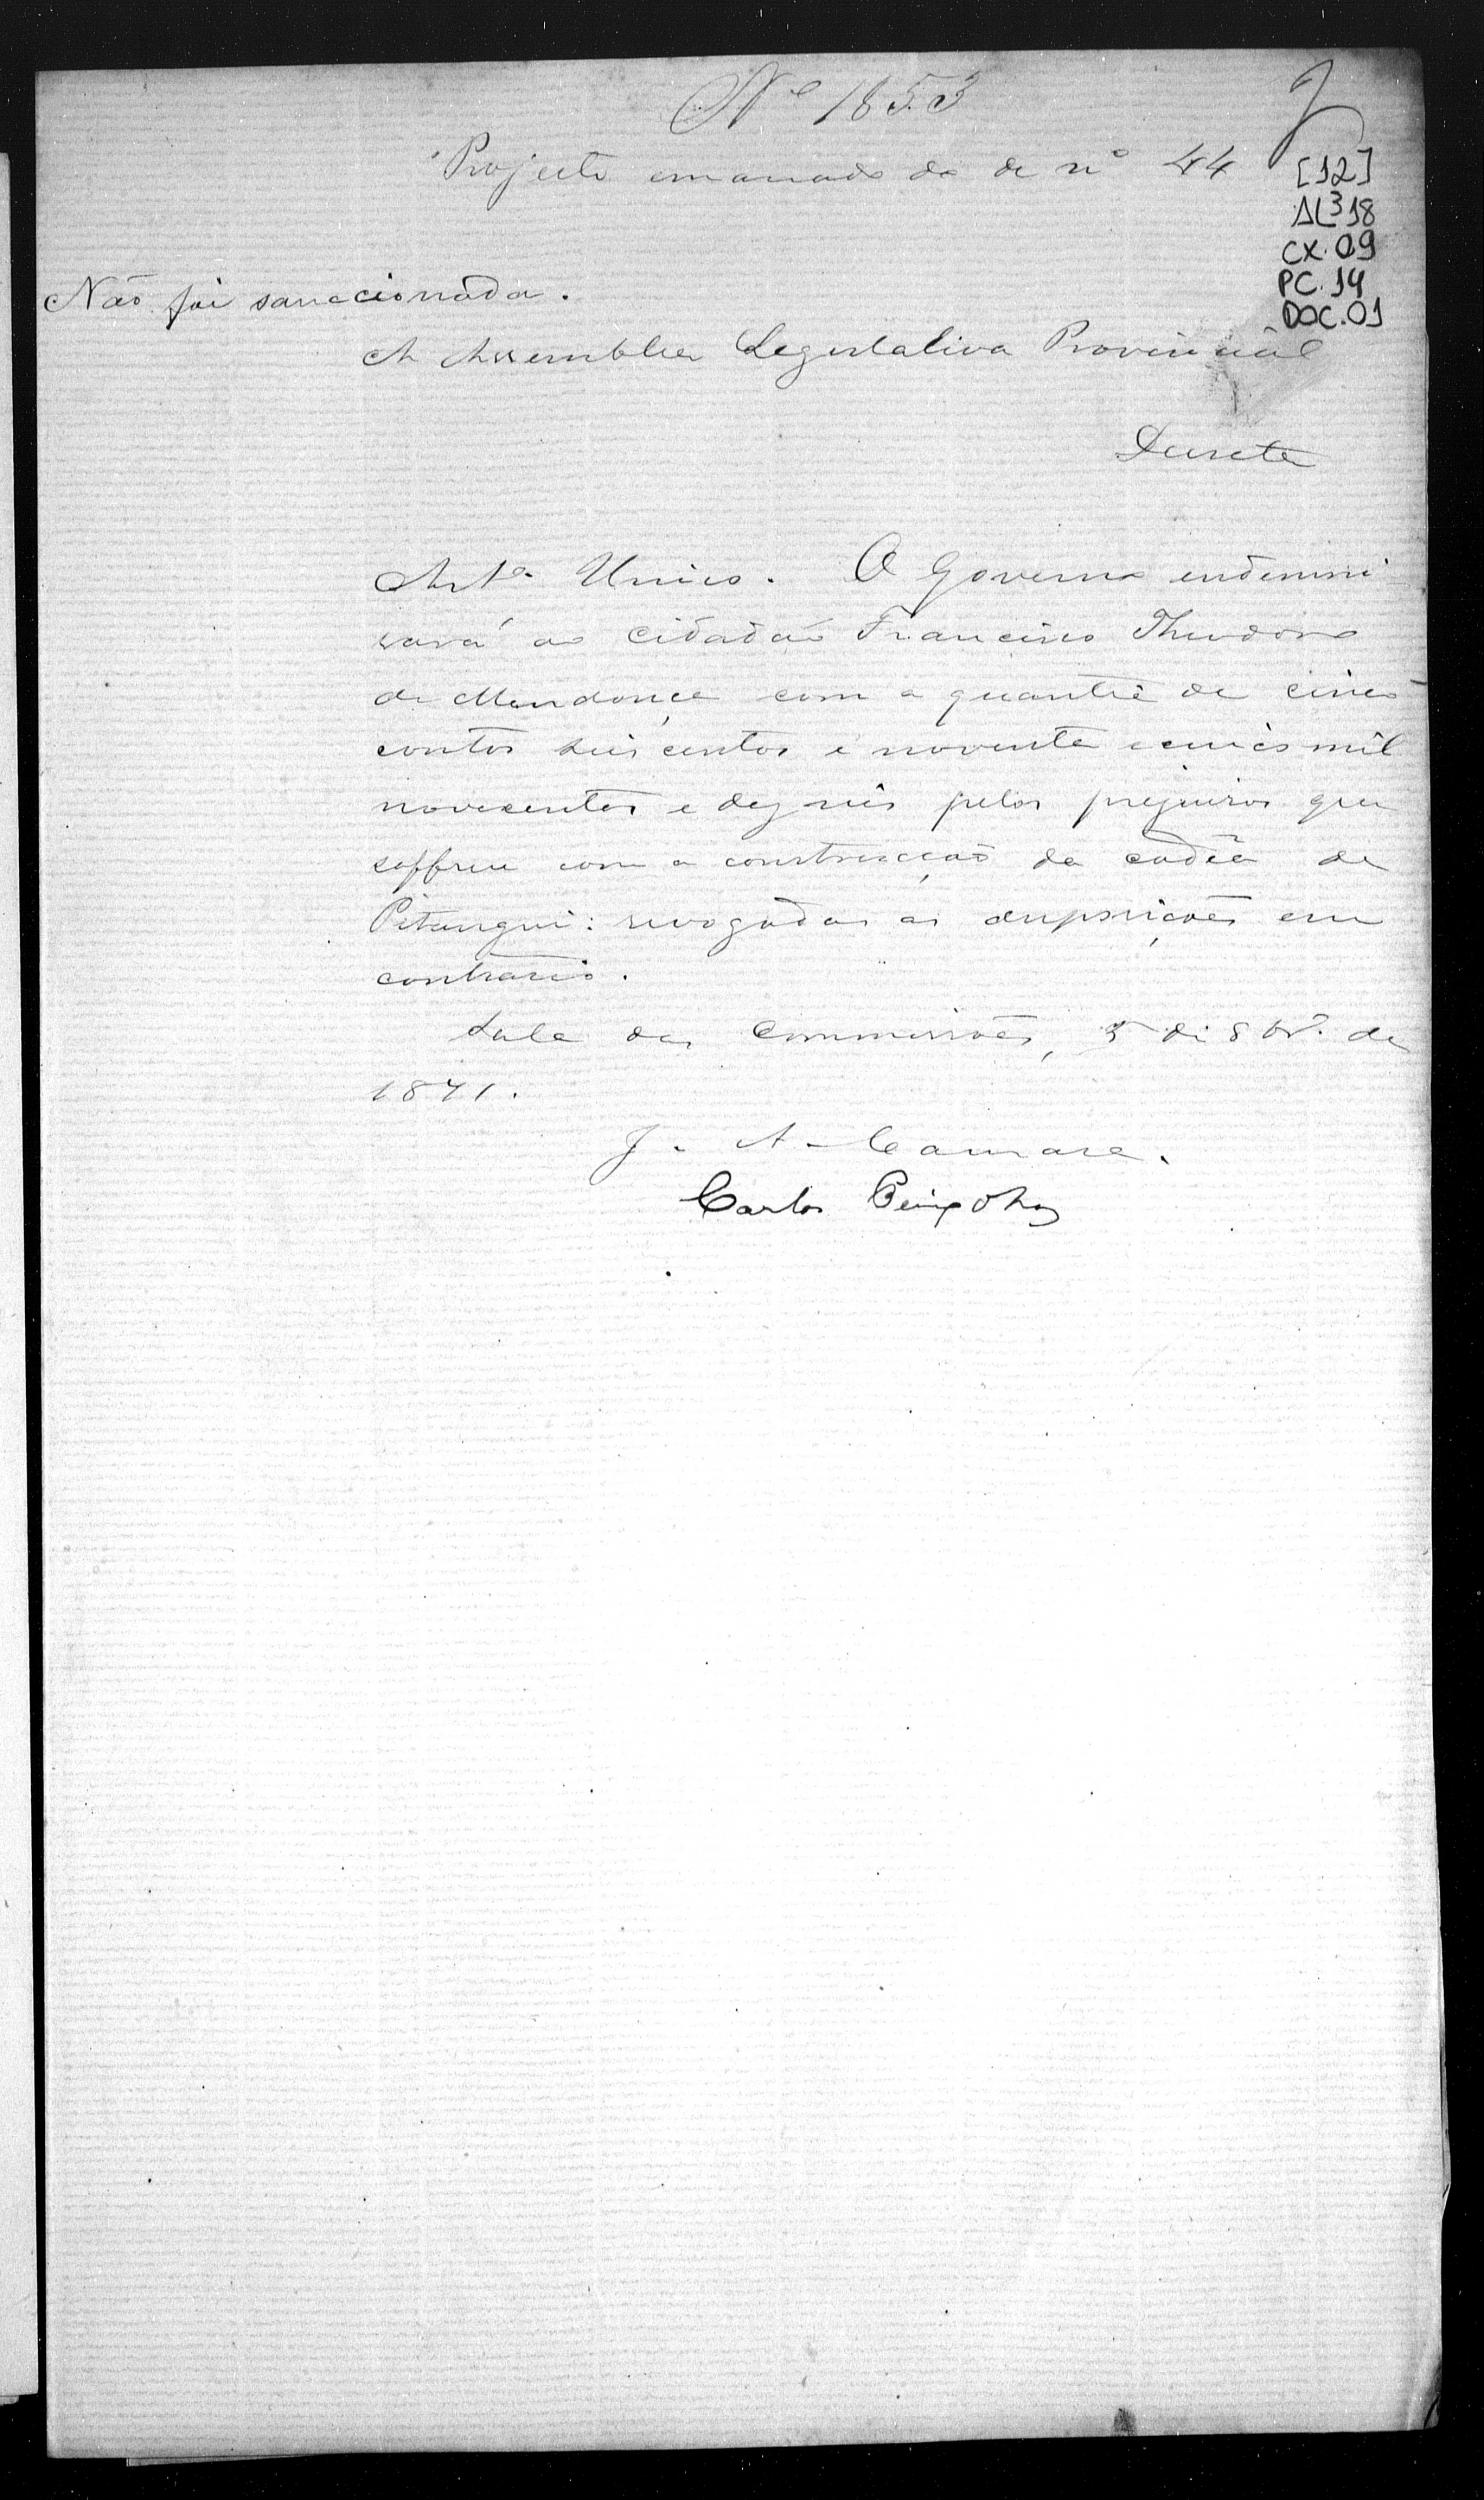 Nº 1853
Projecto emanado do de nº 44
[12]
AL³18
CX.09
PC.14
DOC.01
Não foi sanccionada.
A Assemblea Legislativa Provincial
Decreta
Artº Unico. O Governo endemni
sará ao cidadão Francisco Theodoro
de Mendonça com a quantia de cinco
contos seis centos e noventa e cinco mil
novecentos e dez reis pelos prejuisos que
soffreu com a construcção da cadêa de
Pitangui: revogadas as disposições em
contrario.
Sala das Commissões, 5 de 8bro. de
1871.
J. A. Camara.
Carlos Peixoto